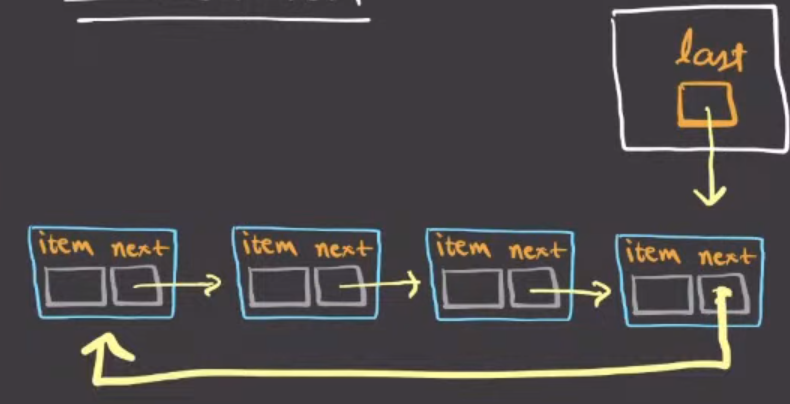 last
item next item next item next item next